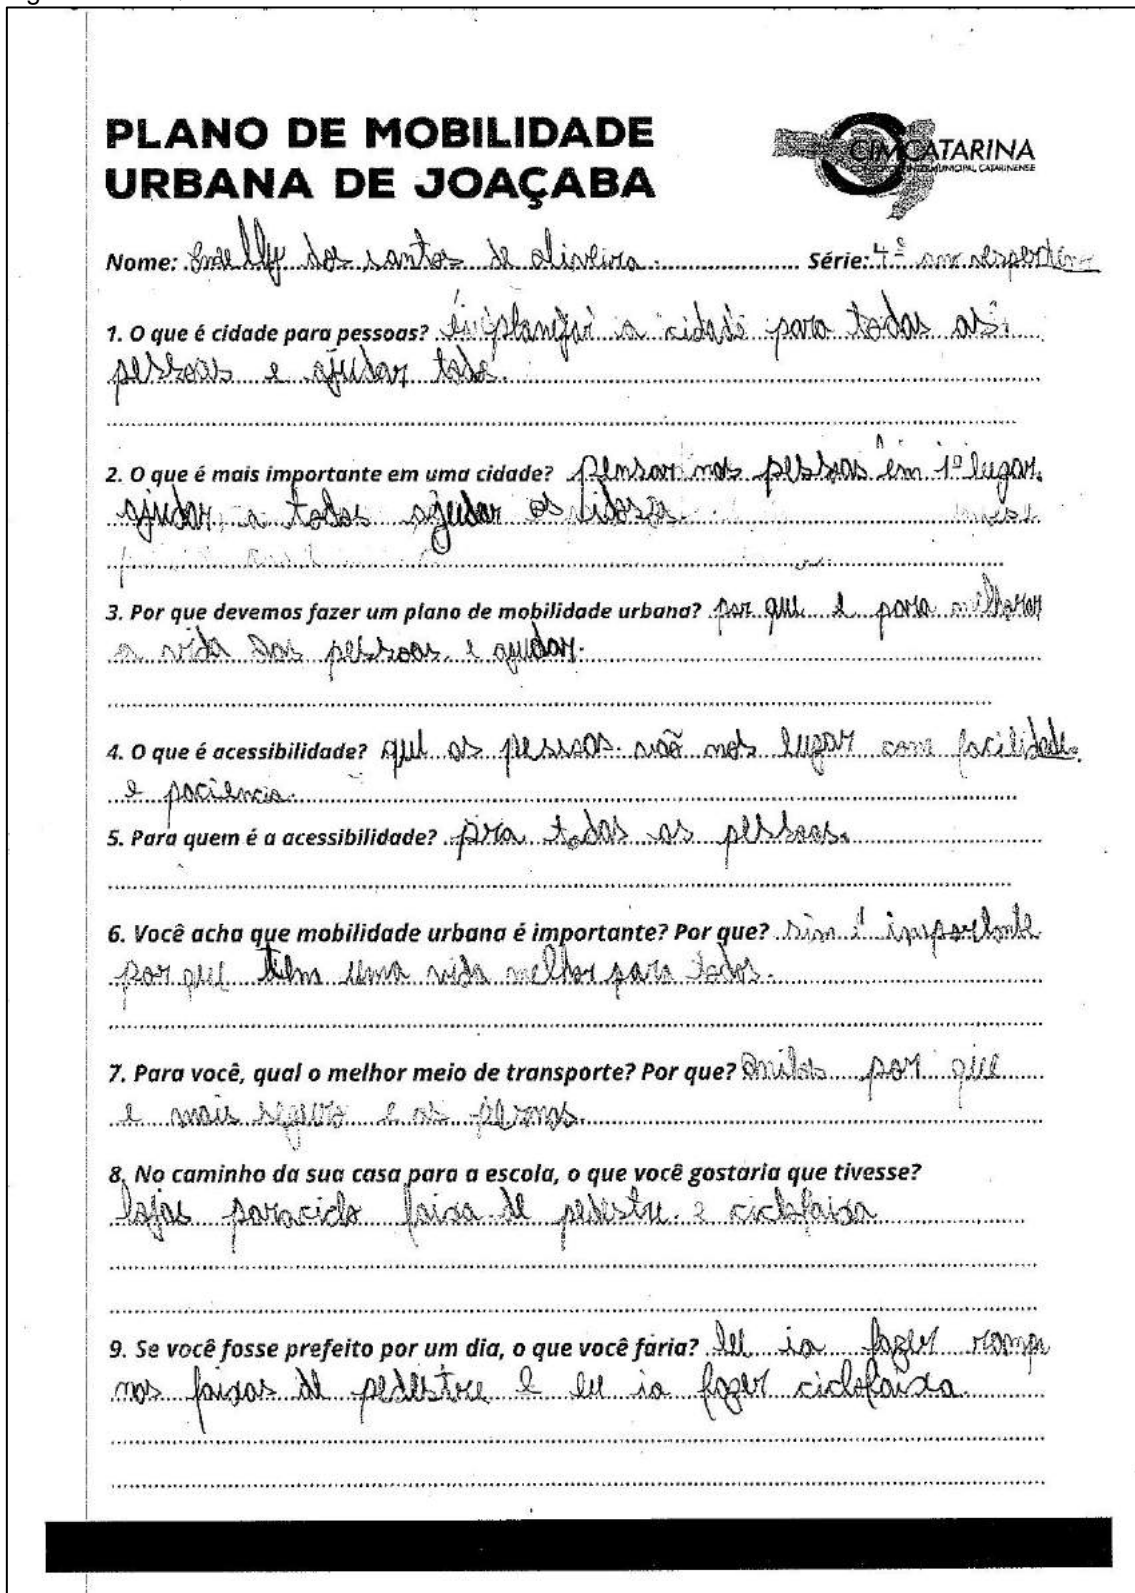 PLANO DE MOBILIDADE
URBANA DE JOAÇABA
CIMCATARINA
CONSÓRCIO INTERMUNICIPAL CATARINENSE
Nome: dos santos de oliveira. Série: 4º ano vespertino
1. O que é cidade para pessoas? planejar a cidade para todas as
pessoas e ajudar todo.
2. O que é mais importante em uma cidade? pensar nas pessoas em 1º lugar.
ajudar a todos ajudar os
3. Por que devemos fazer um plano de mobilidade urbana? por que e para melhorar
a vida das pessoas. e ajudar.
4. O que é acessibilidade? que as pessoas. vão nos lugar com facilidade.
e paciência.
5. Para quem é a acessibilidade? pra todas as pessoas.
6. Você acha que mobilidade urbana é importante? Por que? sim é importante
por que tem uma vida melhor para todos.
7. Para você, qual o melhor meio de transporte? Por que? por que
e mais seguro e as
8. No caminho da sua casa para a escola, o que você gostaria que tivesse?
lojas faixa de pedestre e ciclofaixa
9. Se você fosse prefeito por um dia, o que você faria? eu ia fazer rampa
nas faixas de pedestre e eu ia fazer ciclofaixa.